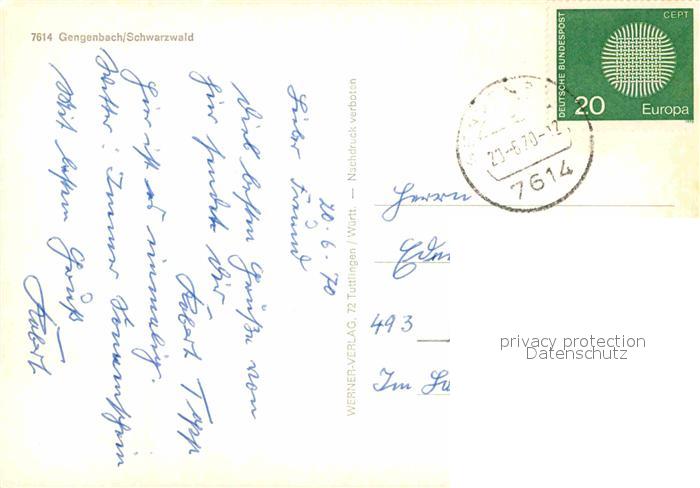 7614 Gengenbach/Schwarzwald
20.6.70
Lieber Freund
Viel besten Grüße von
hier sendet Dir
Robert Topp
Hier ist es einmalig.
Wetter: Immer Sonnenschein
Mit besten Gruß
Robert
WERNER-VERLAG, 72 Tuttlingen / Württ. — Nachdruck verboten
DEUTSCHE BUNDESPOST
CEPT
20
Europa
20.-6.70-12
7614
Herrn
493
Im
privacy protection
Datenschutz